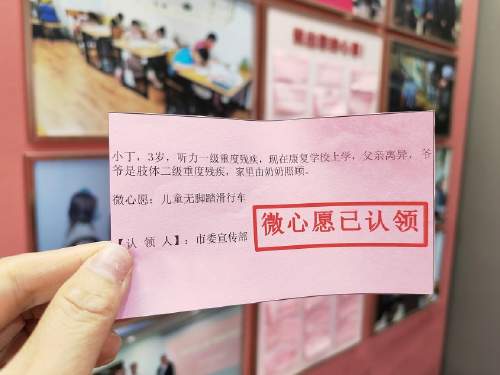 小丁，3岁，听力一级重度残疾，现在康复学校上学，父亲离异，爷
爷是肢体二级重度残疾，家里由奶奶照顾。
微心愿：儿童无脚踏滑行车
微心愿已认领
【认 领 人】：市委宣传部